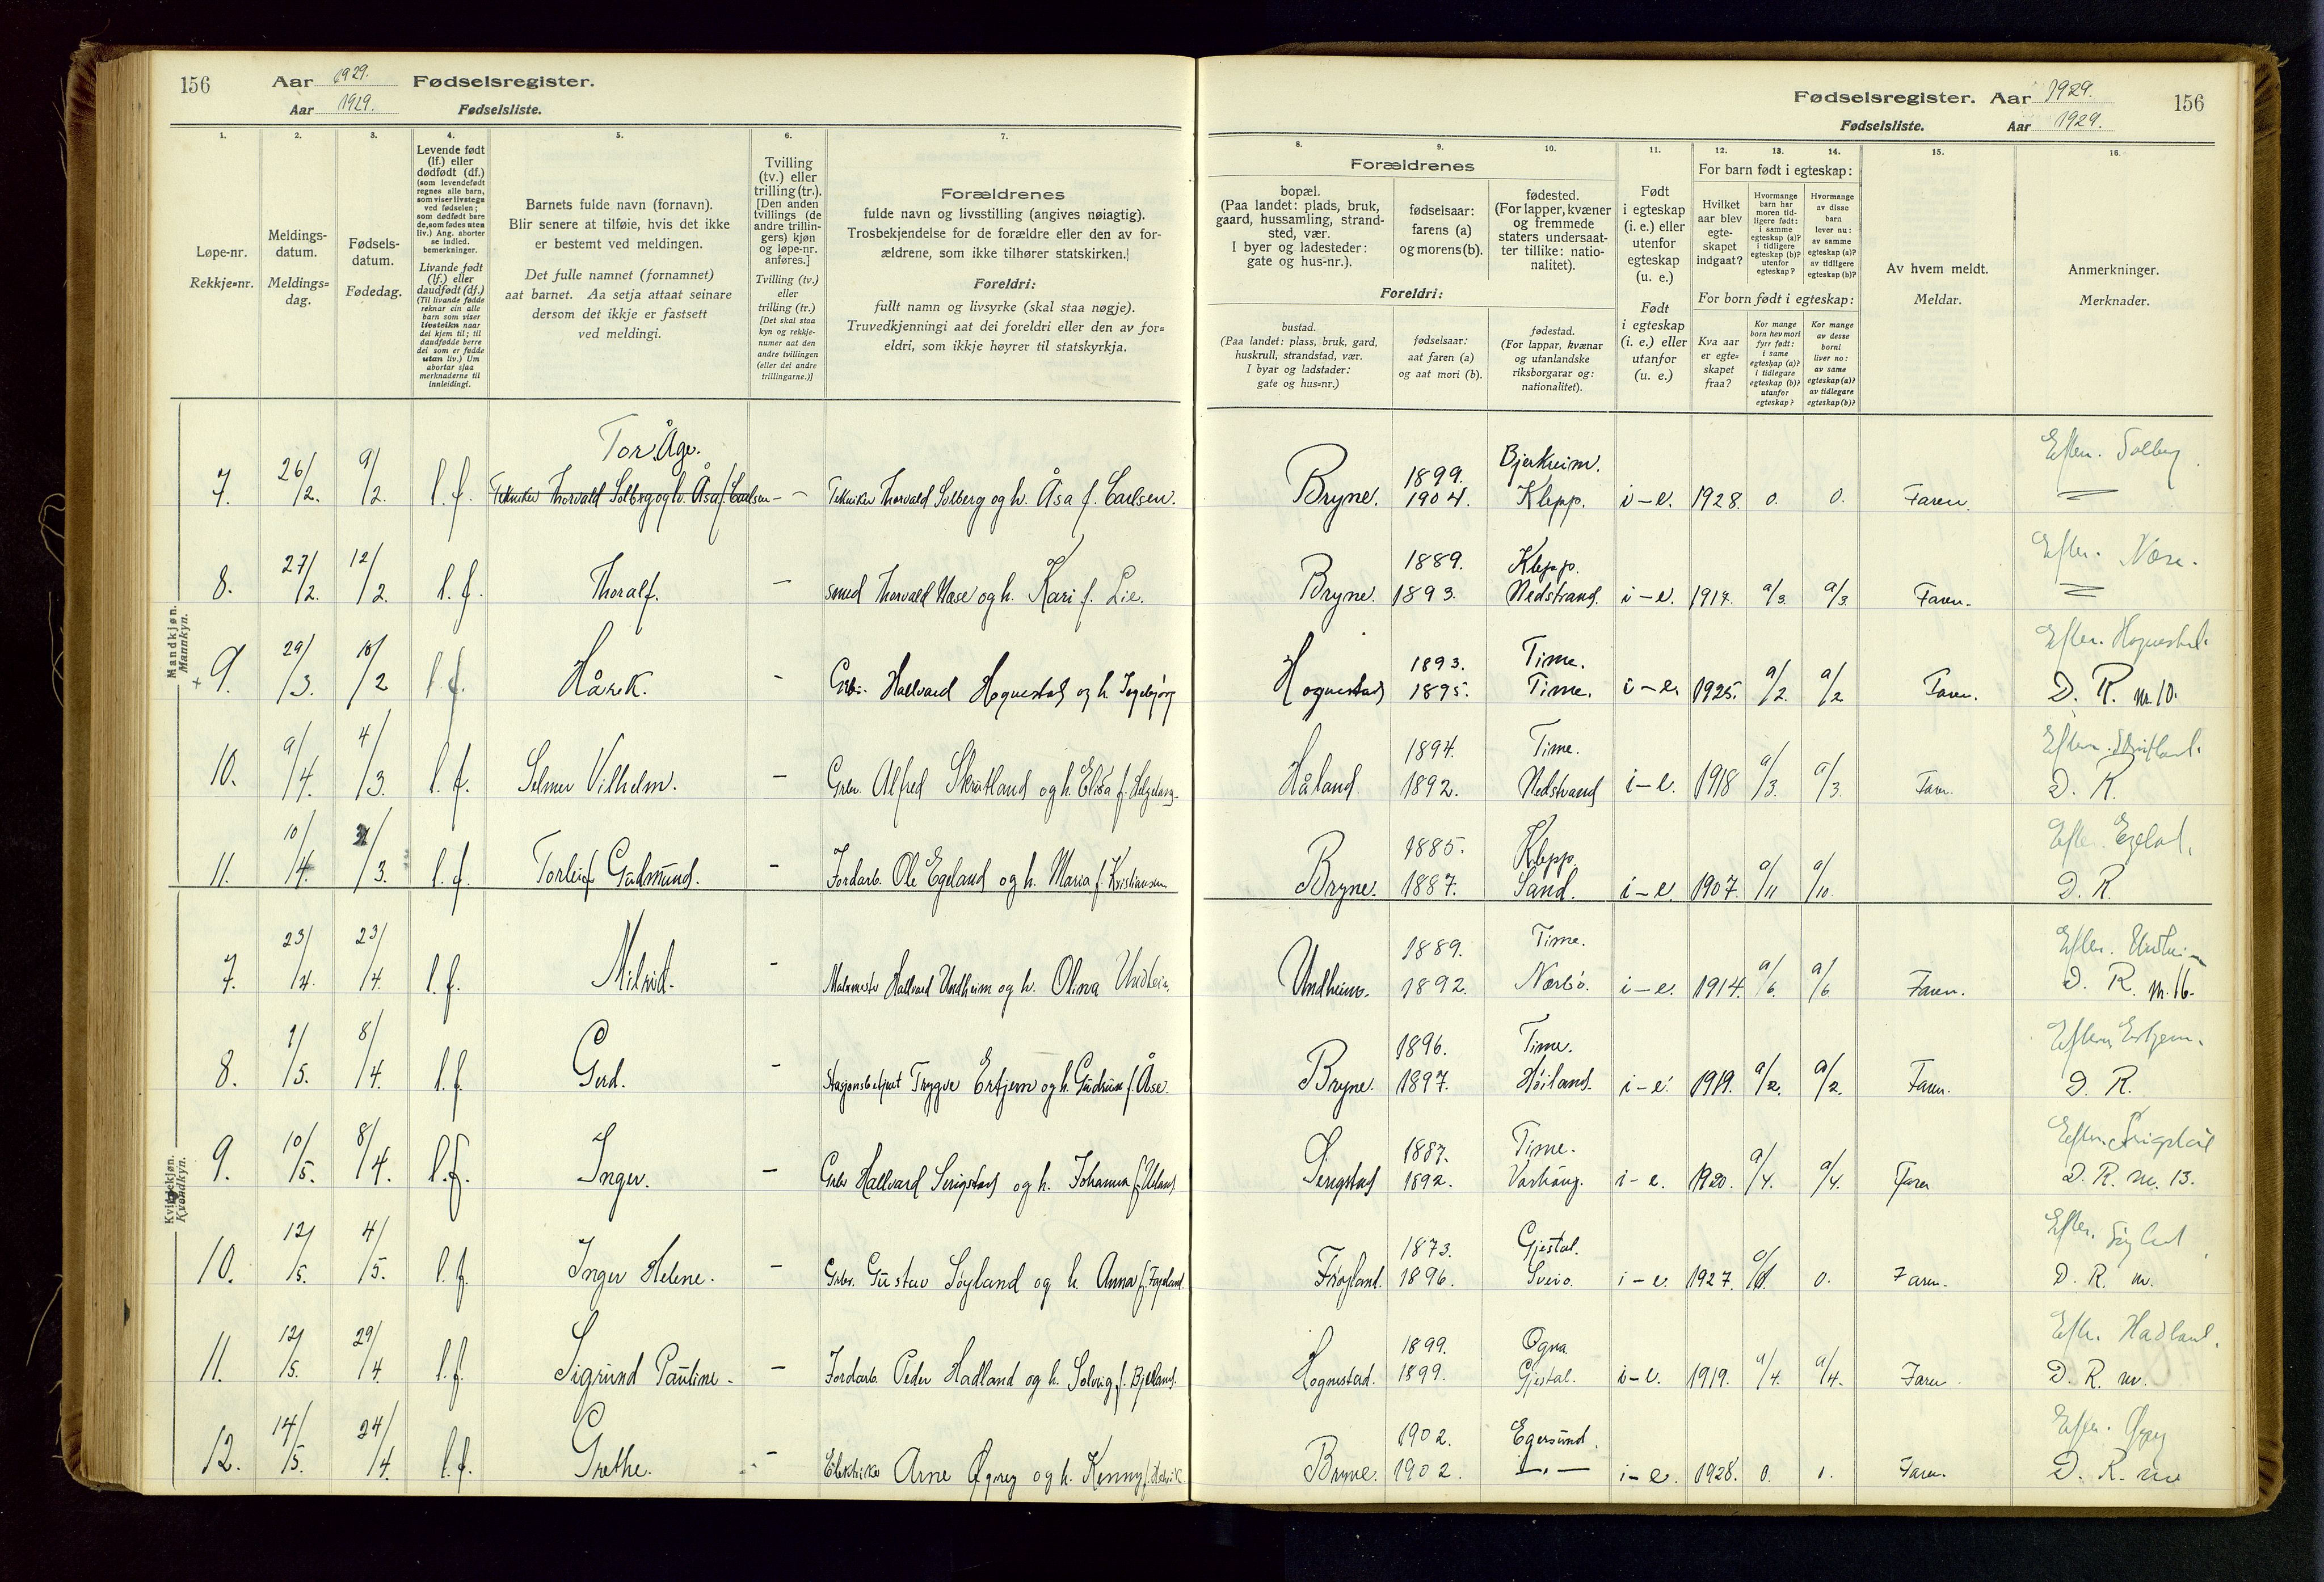 156
Aar 1929. Fødselsregister.
Aar 1929. Fødselsliste.
Fødselsregister. Aar 1929. 156
Fødselsliste. Aar 1929.
1. 2. 3. 4. 5. 6. 7.
Løpe-nr.
Rekkje=nr.
Meldings-
datum.
Meldings=
dag.
Fødsels-
datum.
Fødedag.
Levende født
(lf.) eller
dødfødt (df.)
(som levendefødt
regnes alle barn,
som viser livstegn
ved fødselen;
som dødfødt bare
de, som fødes uten
liv.) Ang. aborter
se indled.
bemerkninger.
Livande født
(lf.) eller
daudfødt (df.)
(Til livande fødde
reknar ein alle
barn som viser
livsteikn naar
dei kjem til; til
daudfødde berre
dei som er fødde
utan liv.) Um
abortar sjaa
merknaderne til
innleidingi.
Barnets fulde navn (fornavn).
Blir senere at tilføie, hvis det ikke
er bestemt ved meldingen.
Det fulle namnet (fornamnet)
aat barnet. Aa setja attaat seinare
dersom det ikkje er fastsett
ved meldingi.
Tvilling
(tv.) eller
trilling (tr.).
[Den anden
tvillings (de
andre trillin-
gers) kjøn
og løpe-nr.
anføres.]
Tvilling (tv.)
eller
trilling (tr.)
[Det skal staa
kyn og rekkje-
numer aat den
andre tvillingen
(eller dei andre
trillingarne.)]
Forældrenes
fulde navn og livsstilling (angives nøiagtig).
Trosbekjendelse for de forældre eller den av for-
ældrene, som ikke tilhører statskirken.
Foreldri:
fullt namn og livsyrke (skal staa nøgje).
Truvedkjenningi aat dei foreldri eller den av for=
eldri, som ikkje høyrer til statskyrkja.
8. 9. 10. 11. 12. 13. 14. 15. 16.
Forældrenes
bopæl.
(Paa landet: plads, bruk,
gaard, hussamling, strand-
sted, vær.
I byer og ladesteder:
gate og hus-nr.).
fødselsaar:
farens (a)
og morens (b).
fødested.
(For lapper, kvæner
og fremmede
staters undersaat-
ter tillike: natio-
nalitet).
Foreldri:
bustad.
(Paa landet: plass, bruk, gard,
huskrull, strandstad, vær.
I byar og ladstader:
gate og hus=nr.)
fødselsaar:
aat faren (a)
og aat mori (b).
fødestad.
(For lappar, kvænar
og utanlandske
riksborgarar og:
nationalitet).
Født
i egteskap
(i. e.) eller
utenfor
egteskap
(u. e.)
Født
i egteskap
(i. e.) eller
utanfor
(u. e.)
For barn født i egteskap:
Hvilket
aar blev
egte-
skapet
indgaat?
Hvormange
barn har
moren tid-
ligere født:
i samme
egteskap (a)?
i tidligere
egteskap (b)?
utenfor
egteskap?
Hvormange
av disse
barn
lever nu:
av samme
egteskap (a)?
av tidligere
egteskap (b)?
For born født i egteskap:
Kva aar
er egte=
skapet
fraa?
Kor mange
born hev mori
fyrr født:
i same
egteskap (a)?
i tidlegare
egteskap (b)?
utanfor
egteskap?
Kor mange
av desse
borni
liver no:
av same
egteskap (a)?
av tidlegare
egteskap (b)?
Av hvem meldt.
Meldar.
Anmerkninger.
Merknader.
Mandkjøn.
Mannkyn.
Tor Åge.
7. 26/2. 9/2. l. f. Tekniker Thorvald Solberg og h. Åsa f. Carlsen - - Tekniker Thorvald Solberg og h. Åsa f. Carlsen. Bryne. 1899. 1904. Bjerkreim. Klepp. i-e. 1928. 0. 0. Faren. Eftern. Solberg.
8. 27/2. 12/2. l. f. Thoralf. - smed Thorvald Næse og h. Kari f. Lie. Bryne. 1889. 1893. Klepp. Nedstrand. i-e. 1917. a/3. a/3. Faren. Eftern.
+ 9. 29/3. 18/2 l. f. Hårek. - Grbr. Hallvard Hognestad og h. Ingebjørg Hognestad 1893. 1895. Time. Time. i-e. 1925. a/2. a/2 Faren. Eftern. Hognestad. D. R. nr. 10.
10. 9/4. 4/3. l. f. Selmer Vilhelm. - Grbr. Alfred Skrutland og h. Elisa f. Håland. 1894. 1892. Time. Nedstrand i-e. 1918 a/3. a/3. Faren. Eftern. D. R.
11. 10/4. /3. l. f. Torleif Gudmund. - Jordarb. Ole Egeland og h. Maria f. Kristiansen Bryne. 1885. 1887. Klepp. Sand. i-e. 1907. a/11 a/10. Eftern. Egeland. D. R.
Kvindekjøn.
Kvendkyn.
7. 23/4. 23/4. l. f. Milrid. - Malermester Hallvard Undheim og h. Olina Undheim. Undheim. 1889. 1892. Time. Nærbø. i-e. 1914. a/6. a/6 Faren. Eftern. Undheim D. R. nr. 16.
8. 1/5. 8/4. l. f. Gerd. - Stasjonsbetjent Trygve Ertjern og h. Gudrun f. Åse. Bryne. 1896. 1897. Time. Høiland. i-e. 1919. a/2. a/2. Faren. Eftern. D. R.
9. 10/5. 8/4. l. f. Inger. - Grbr Hallvard Serigstad og h. Johanna f. Serigstad 1887. 1892. Time. Varhaug. i-e. 1920. a/4. a/4. Faren Eftern. Serigstad D. R. nr. 13.
10. 12/5. 4/5. l. f. Inger Helene. - Grbr. Gustav Søyland og h. Anna f. Fageland. Frøyland. 1873. 1896. Gjestal. Sveio. i-e. 1927. 0. Faren. Eftern. D. R. nr.
11. 12/5. 29/4. l. f. Sigrund Pauline. - Jordarb. Peder Hadland og h. Solveig f. Bjelland. Hognestad. 1899. 1899. Ogna Gjestal. i-e. 1919. a/4. a/4. Faren. Eftern. Hadland. D. R. nr.
12. 14/5. 24/4. l. f. Grethe. - Elektriker Arne Øgrey og h. Kenny f. Bryne. 1902. 1902. Egersund. —„— i-e. 1928. 0. Faren. Eftern. D. R. nr